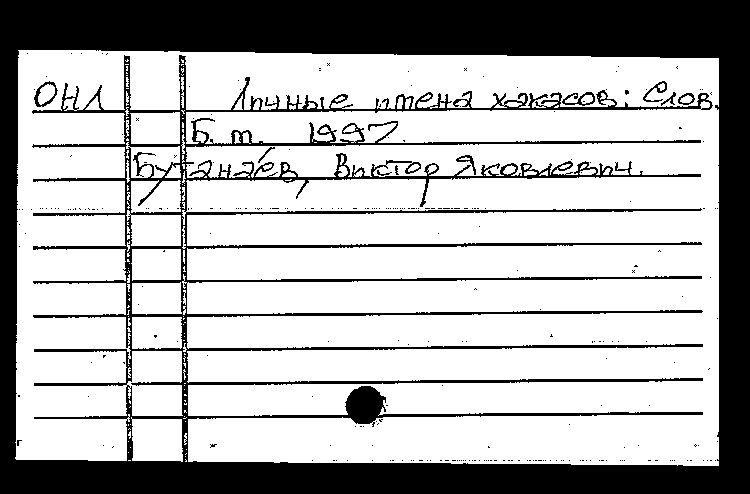 ОНЛ Личные имена хакасов: Слов.
Б. т. 1997.
Бутанаев, Виктор Яковлевич.